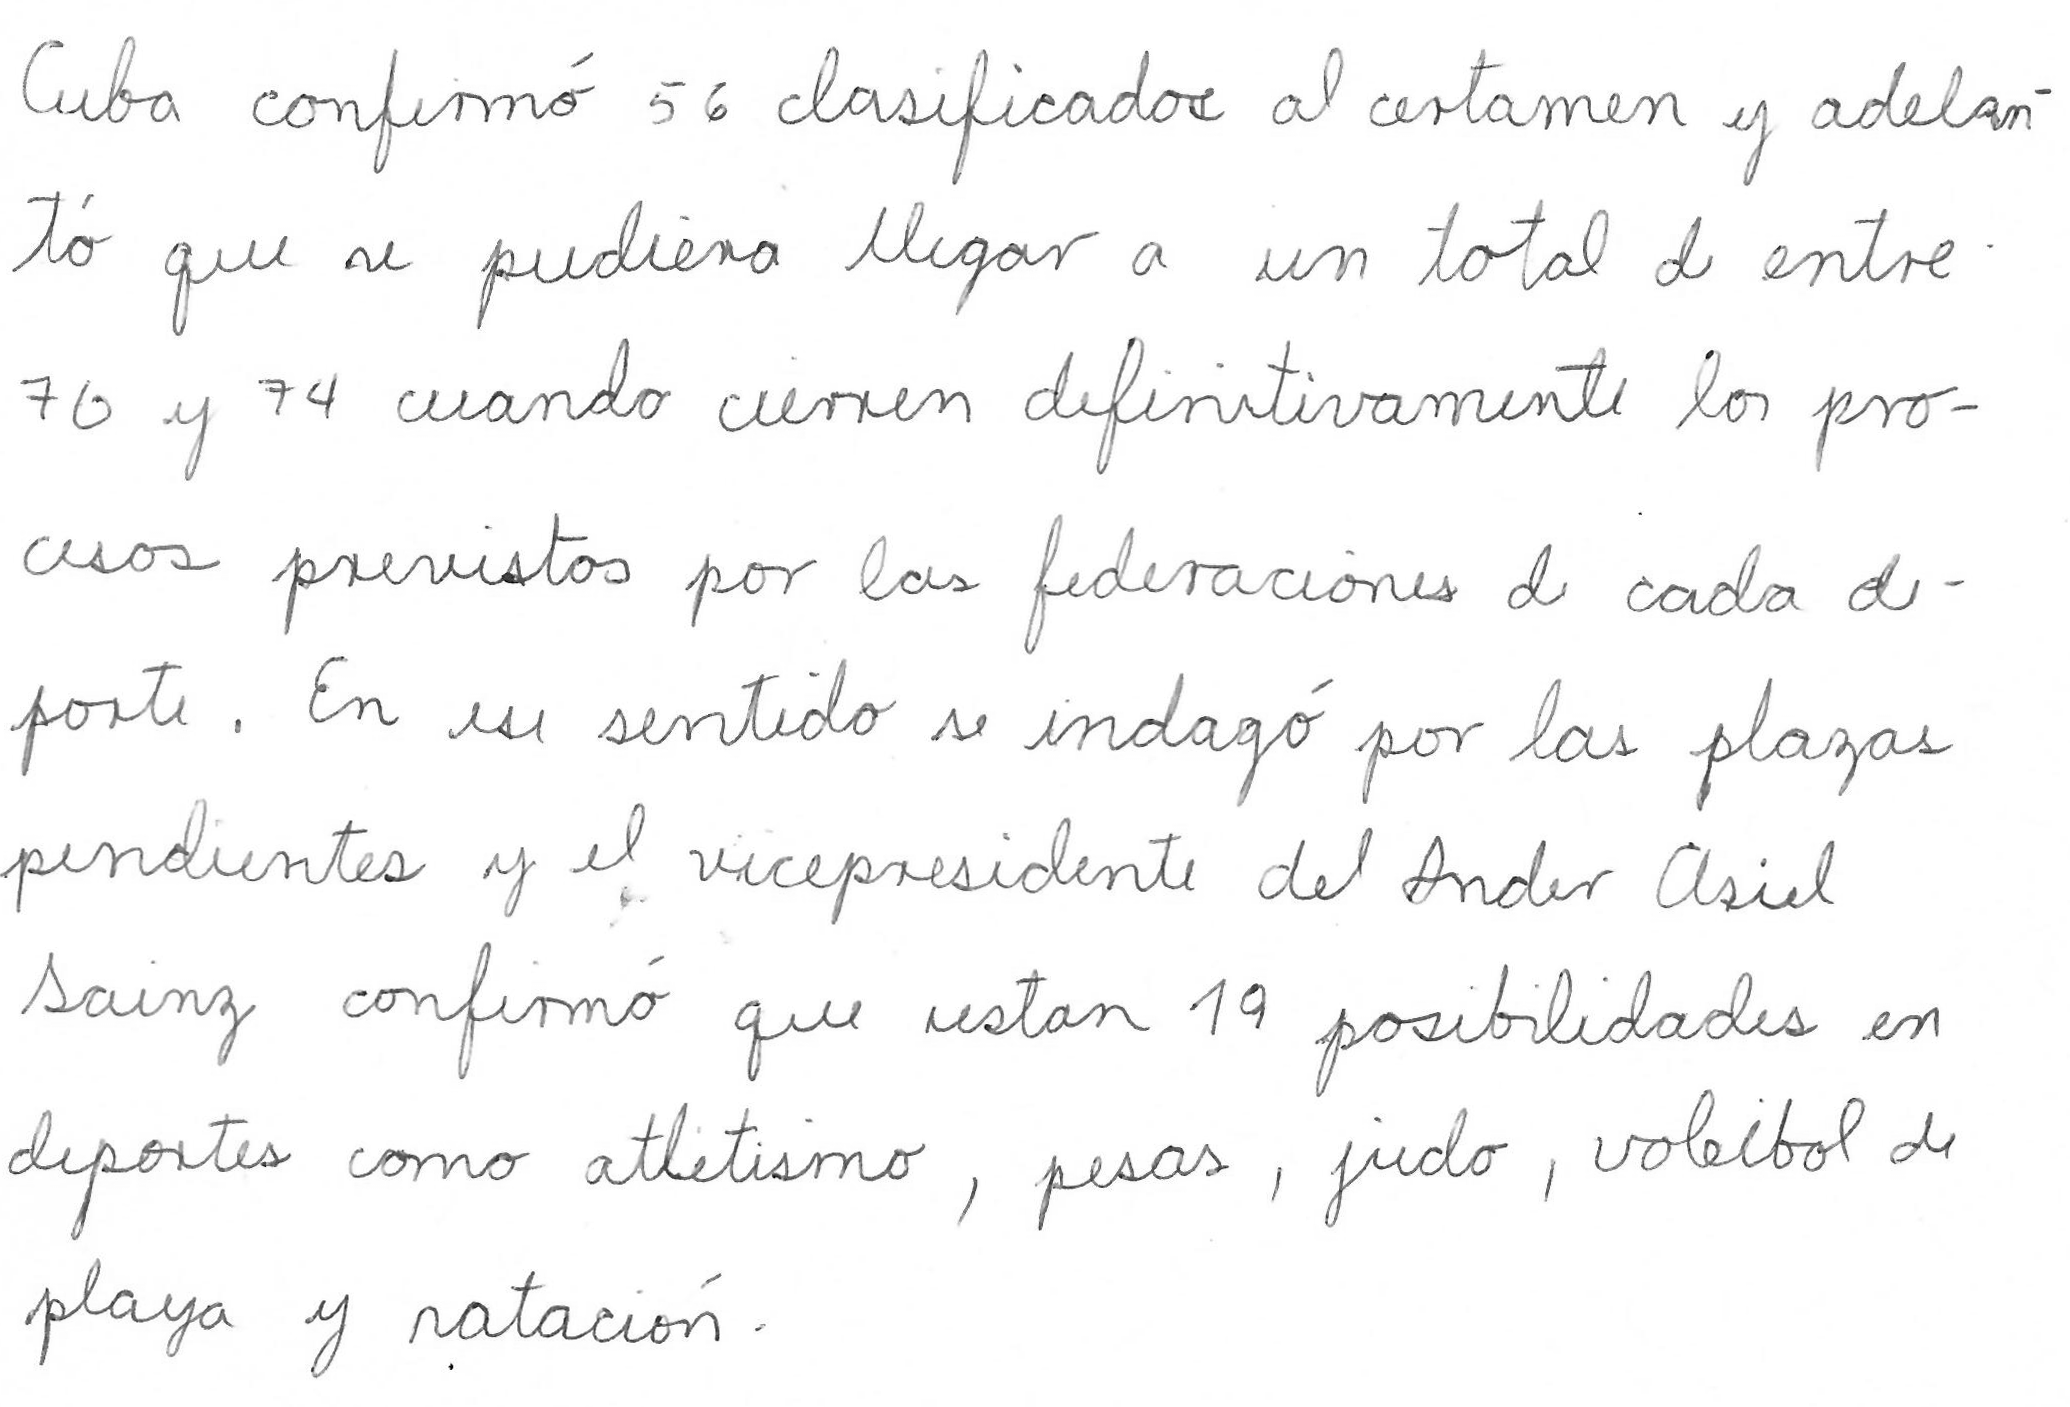 Cuba confirmó 56 clasificados al certamen y adelan-
tó que se pudiera llegar a un total de entre
70 y 74 cuando cierren definitivamente los pro-
cesos previstos por las federaciones de cada de-
porte. En ese sentido se indagó por las plazas
pendientes y el vicepresidente del Inder Asiel
Sainz confirmó que restan 19 posibilidades en
deportes como atletismo, pesas, judo, voleibol de
playa y natación.